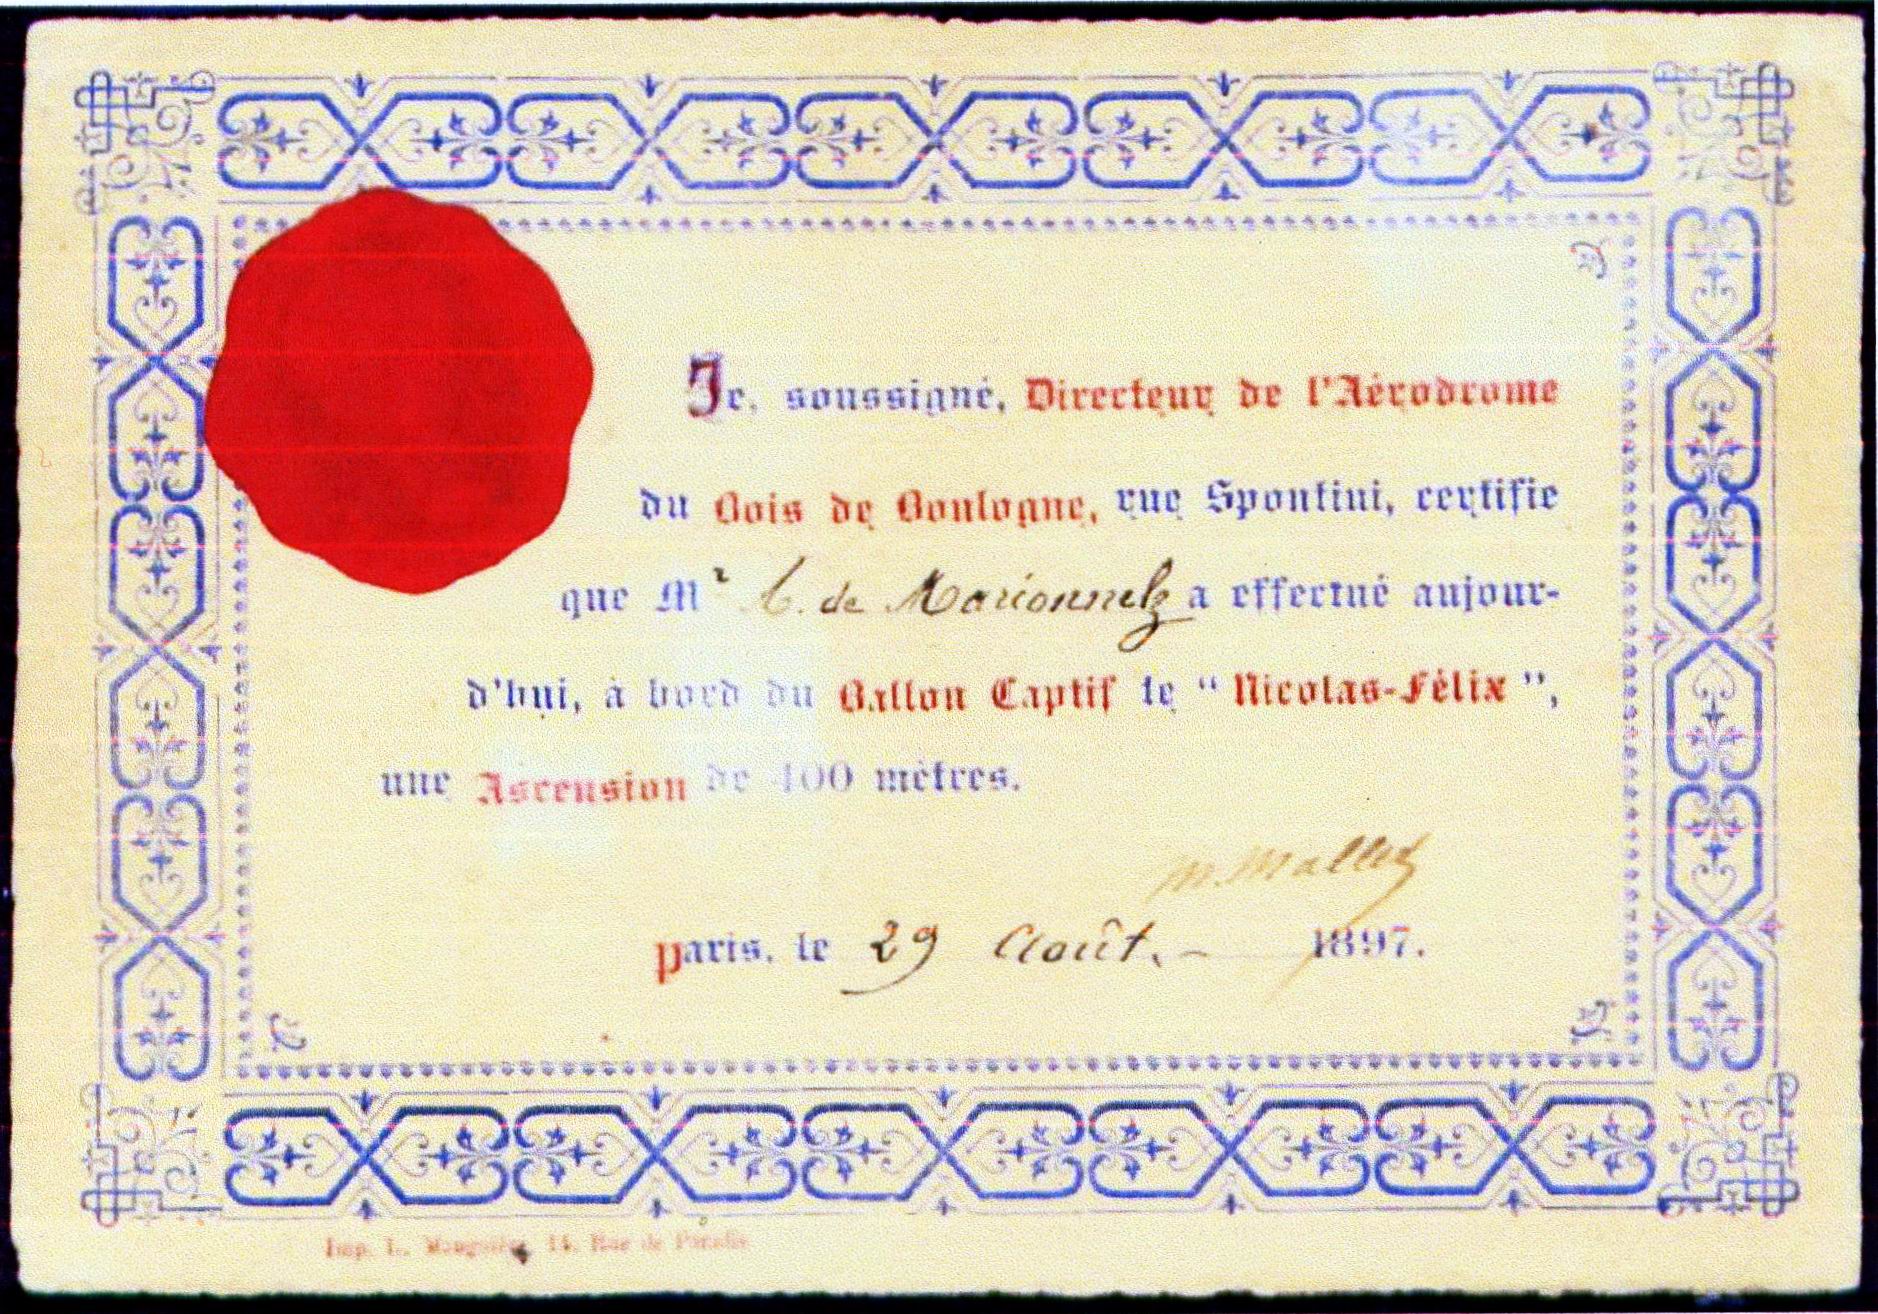 Je, soussigné, Directeur de l'Aérodrome
du Bois de Boulogne, rue Spontini, certifie
que Mr C. de Marionnelz a effectué aujour-
d'hui, à bord du Ballon Captif le "Nicolas-Félix",
une Ascension de 400 mètres.
M. Mallet
Paris, le 29 Août. - 1897.
Imp. L. 14, Rue de Paradis